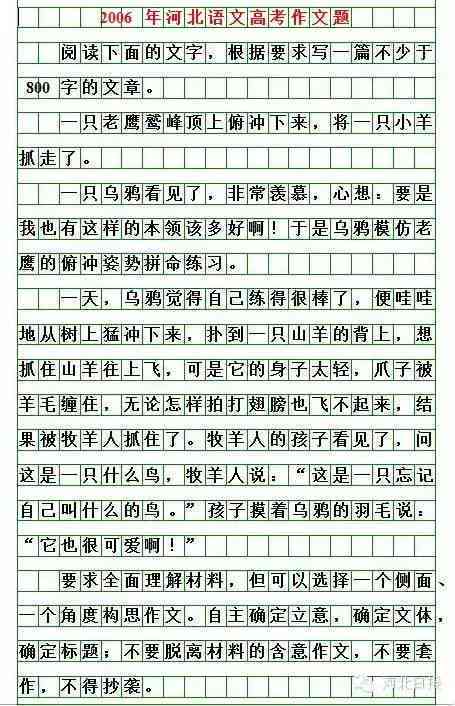 2006 年河北语文高考作文题
阅读下面的文字，根据要求写一篇不少于
800 字的文章。
一只老鹰鹫峰顶上俯冲下来，将一只小羊
抓走了。
一只乌鸦看见了，非常羡慕，心想：要是
我也有这样的本领该多好啊！于是乌鸦模仿老
鹰的俯冲姿势拼命练习。
一天，乌鸦觉得自己练得很棒了，便哇哇
地从树上猛冲下来，扑到一只山羊的背上，想
抓住山羊往上飞，可是它的身子太轻，爪子被
羊毛缠住，无论怎样拍打翅膀也飞不起来，结
果被牧羊人抓住了。牧羊人的孩子看见了，问
这是一只什么鸟，牧羊人说：“这是一只忘记
自己叫什么的鸟。”孩子摸着乌鸦的羽毛说：
“它也很可爱啊！”
要求全面理解材料，但可以选择一个侧面、
一个角度构思作文。自主确定立意，确定文体，
确定标题；不要脱离材料的含意作文，不要套
作，不得抄袭。
河北日报